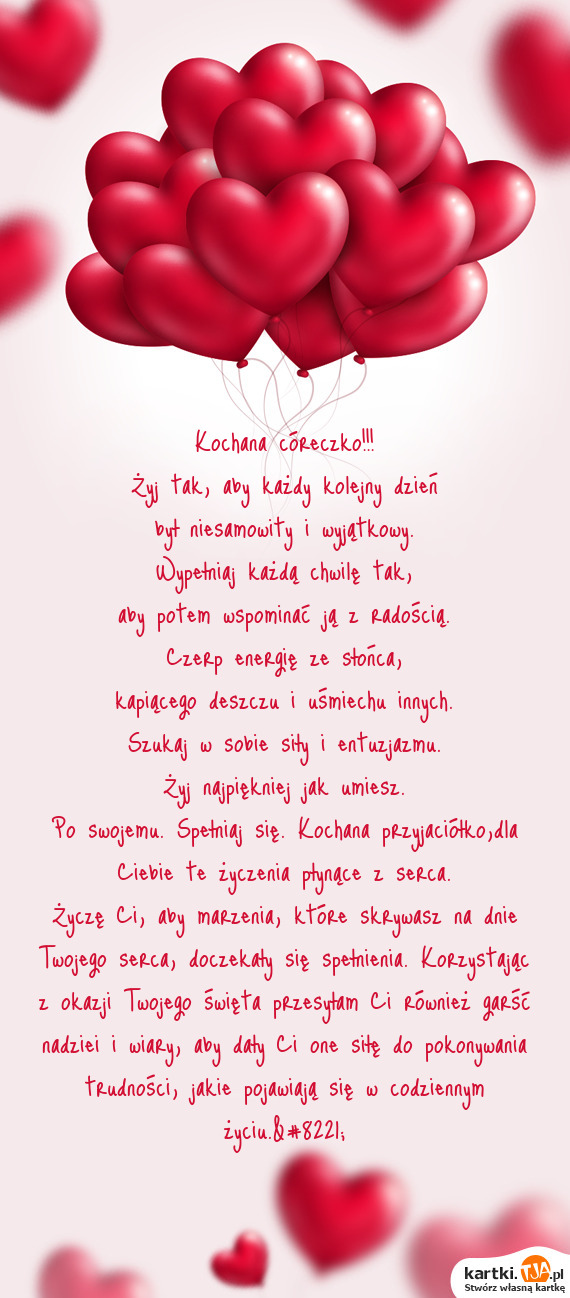 Kochana córeczko!!!
Żyj tak, aby każdy kolejny dzień
był niesamowity i wyjątkowy.
Wypełniaj każdą chwilę tak,
aby potem wspominać ją z radością.
Czerp energię ze słońca,
kapiącego deszczu i uśmiechu innych.
Szukaj w sobie siły i entuzjazmu.
Żyj najpiękniej jak umiesz.
Po swojemu. Spełniaj się. Kochana przyjaciółko,dla
Ciebie te życzenia płynące z serca.
Życzę Ci, aby marzenia, które skrywasz na dnie
Twojego serca, doczekały się spełnienia. Korzystając
z okazji Twojego święta przesyłam Ci również garść
nadziei i wiary, aby dały Ci one siłę do pokonywania
trudności, jakie pojawiają się w codziennym
życiu.&#8221;
kartki.TJA.pl
Stwórz własną kartkę